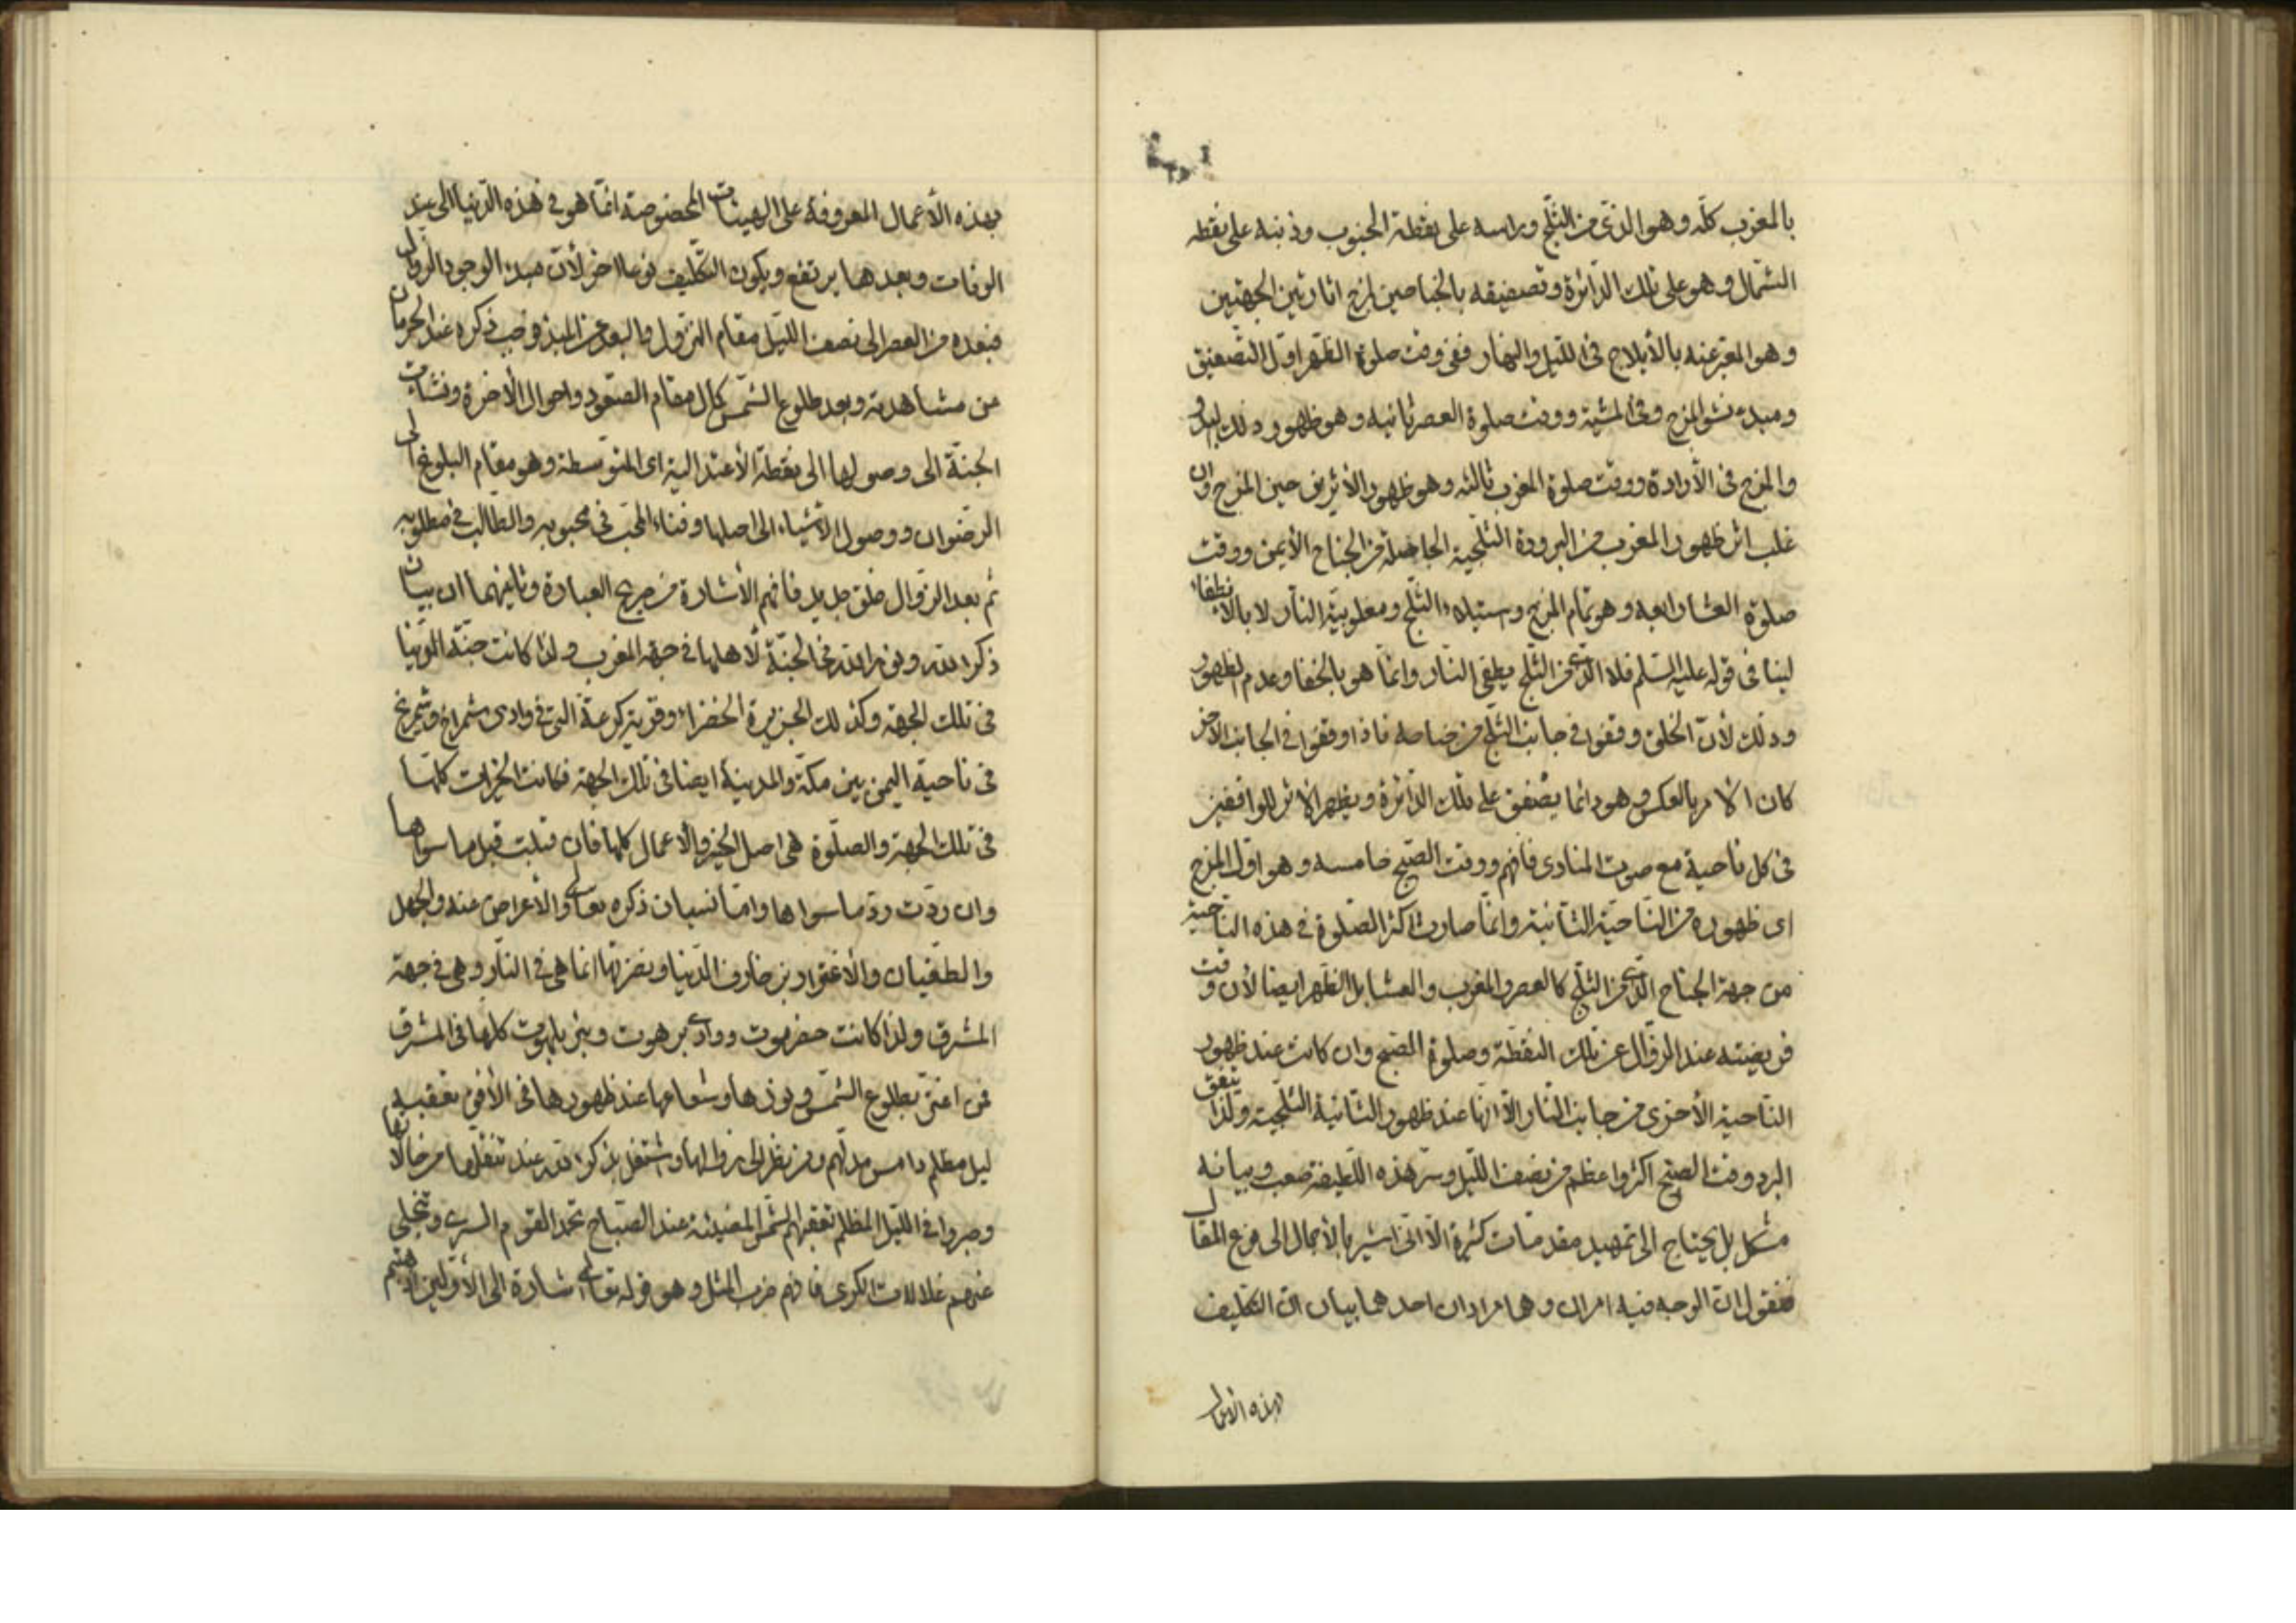 بالمغرب كلّه وهو الذى من الثلج وراسه على نقطة الجنوب وذنبه على نقطه
الشمال وهو على تلك الدّائرة وتصفيقه بالجناحين لمزج اثار تين الجهتين
وهو المعبّر عنه بالأيلاج فى الليل والنهار ففى وقت صلوة الظهر اوّل التّصفيق
ومبدء نشو المزج وفى المشية ووقت صلوة العصر ثانيه وهو ظهور ذلك
والمزج فى الأرادة ووقت صلوة المغرب ثالثه وهو ظهور الأثرين حين المزج وان
غلب اثر ظهور المغرب من البرودة الثلجية الحاصلة من الجناح الأيمن ووقت
صلوة العشا رابعه وهو تمام المزج وستيلاء الثلج ومغلوبية النّار لا بالأنطفاء
لينافى قوله عليه السّلم فلا الذى من الثلج يطفى النّار وانّما هو بالخفا وعدم الظهور
وذلك لأنّ الخلق وقفوا فى جانب الثلج من جناحه فاذا وقفوا فى الجانب الاخر
كان الامر بالعكس وهو دائما يصفق على تلك الدّائرة ويظهر الاثر للواقفين
فى كل ناحية مع صوت المنادى فافهم ووقت الصّبح خامسه وهو اوّل المزج
اى ظهوره من النّاحية الثّانية وانّما صارت اكثر الصّلوة فى هذه النّاحية
من جهة الجناح الذى من الثلج كالعصر والمغرب والعشا بل الظهر ايضا لأن وقت
فريضته عند الزّوال عن تلك النقطة وصلوة الصّبح وان كانت عند ظهور
النّاحية الأخرى من جانب النّار الّا انّها عند ظهور الثّانية الثلجية ولذا يتفق
البرد وقت الصّبح اكثر واعظم من نصف الليل وسرّ هذه اللّطيفة صعب وبيانه
مشكل بل يحتاج الى تمهيد مقدمات كثيرة الّا انّى اشير بالأجمال الى فرع المقال
فنقول انّ الوجه فيه امران وهما مرادان احدهما بيان انّ التكليف
بهذه الأعمال
بهذه الأعمال المعروفة على الهيئات المخصوصة انّما هو فى هذه الدّنيا الى عند
الوفات وبعدها يرتفع ويكون التّكليف نوعا اخر لأنّ مبدء الوجود الزّوال
فبعده من العصر الى نصف الليل مقام النّزول والبعد عن المبدء وجب ذكره عند الحرمان
من مشاهدته وبعد طلوع الشّمس كمال مقام الصّعود واحوال الأخرة ونشات
الجنّة الى وصولها الى نقطة الأعتدالية اى المتوسطة وهو مقام البلوغ الى
الرّضوان ووصول الاشياء الى اصلها وفناء المحبّ فى محبوبه والطّالب فى مطلوبه
ثم بعد الزّوال خلق جديد فافهم الأشارة من صريح العبارة وثانيهما ان بيان
ذكر الله ونور الله فى الجنّة لأهلها فى جهة المغرب ولذا كانت جنّة الدّنيا
فى تلك الجهة وكذلك الجزيرة الخضراء وقرية كرعة الّتى فى وادى شمراخ وشمريخ
فى ناحية اليمن بين مكّة والمدينة ايضا فى تلك الجهة فكانت الخيرات كلّها
فى تلك الجهة والصلّوة هى اصل الخير والاعمال كلها فان قبلت قبل ما سواها
وان ردّت ردّ ما سواها وامّا نسيان ذكره تعالى والأعراض عنه والجهل
والطغيان والأغترار بزخارف الدّنيا ونضرتها انما هى فى النّار وهى فى جهة
المشرق ولذا كانت حضرموت ووادى برهوت وبئر بلهوت كلها فى المشرق
فمن اغترّ بطلوع الشّمس ونورها وشعاعها عند ظهورها فى الأفق تعقبه
ليل مظلم دامس مدلهم ومن نظر الى زوالها واشتغل بذكر الله عند تنقلها من حالاتها
وصبروا فى الليل المظلم تعقبهم الشّمس المضيئة عند الصّباح تحمد القوم السرى وتنجلى
عنهم غلالات الكرى فافهم ضرب المثل وهو قوله تعالى اشارة الى الأوّلين اذهبتم